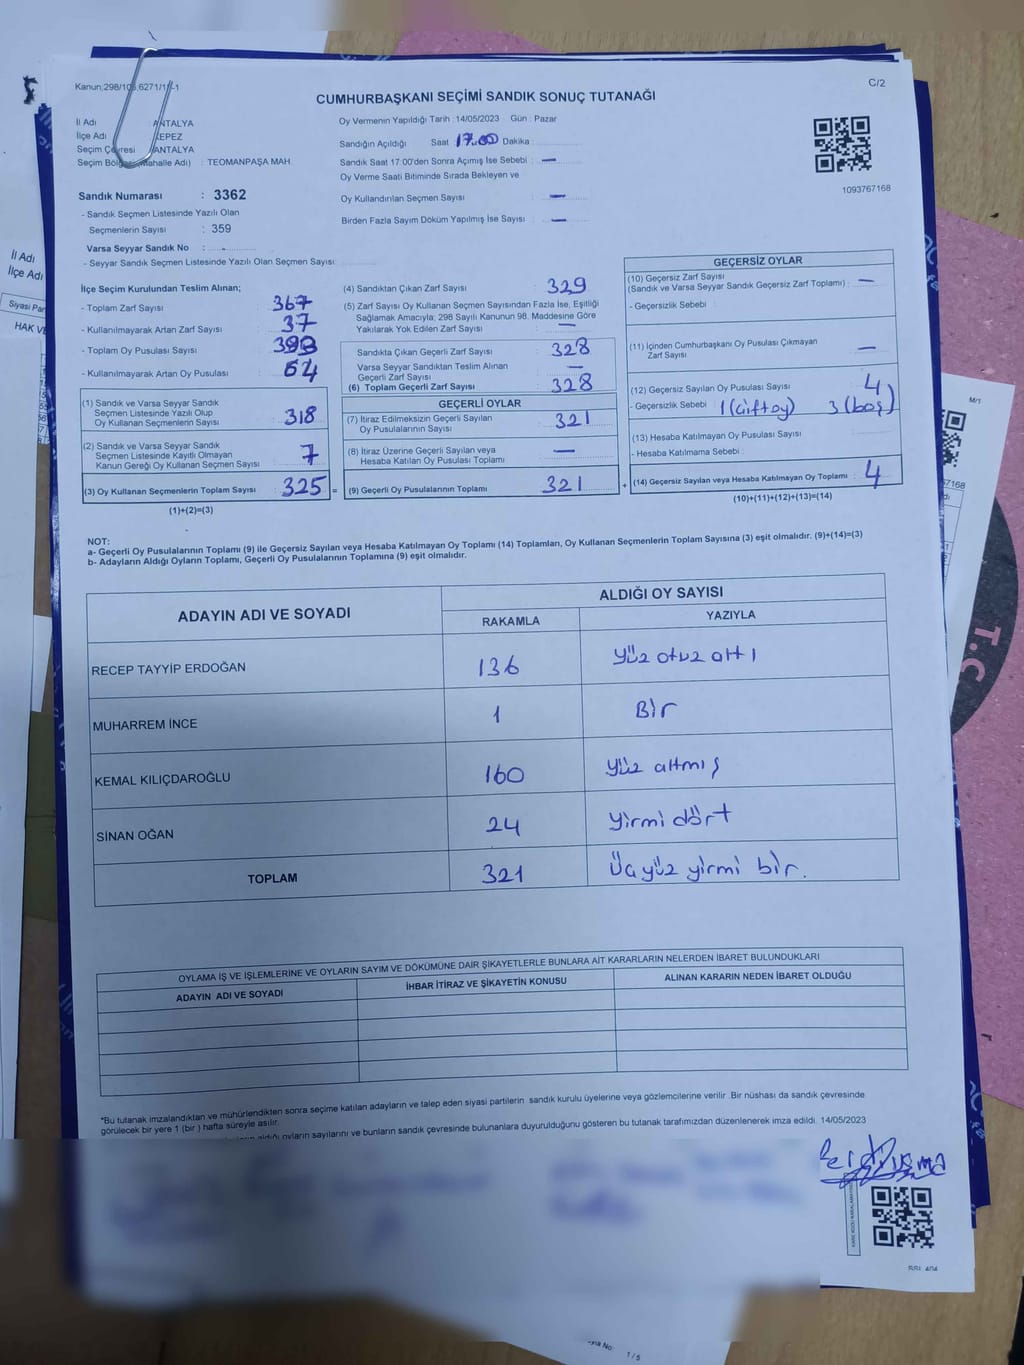 Kanun:298/10 6271/1 -1
C/2
CUMHURBAŞKANI SEÇİMİ SANDIK SONUÇ TUTANAĞI
İl Adı : ANTALYA
İlçe Adı KEPEZ
Seçim Çevresi ANTALYA
Seçim Bölgesi (Mahalle Adı) : TEOMANPAŞA MAH.
Oy Vermenin Yapıldığı Tarih : 14/05/2023 Gün : Pazar
Sandığın Açıldığı Saat 17.00 Dakika :
Sandık Saat 17.00'den Sonra Açımış İse Sebebi : —
Oy Verme Saati Bitiminde Sırada Bekleyen ve
Oy Kullandırılan Seçmen Sayısı : —
Birden Fazla Sayım Döküm Yapılmış İse Sayısı : —
1093767168
Sandık Numarası : 3362
- Sandık Seçmen Listesinde Yazılı Olan
Seçmenlerin Sayısı : 359
Varsa Seyyar Sandık No : -
- Seyyar Sandık Seçmen Listesinde Yazılı Olan Seçmen Sayısı:
İlçe Seçim Kurulundan Teslim Alınan;
- Toplam Zarf Sayısı : 367
- Kullanılmayarak Artan Zarf Sayısı : 37
- Toplam Oy Pusulası Sayısı :
- Kullanılmayarak Artan Oy Pusulası : 64
(1) Sandık ve Varsa Seyyar Sandık
Seçmen Listesinde Yazılı Olup
Oy Kullanan Seçmenlerin Sayısı : 318
(2) Sandık ve Varsa Seyyar Sandık
Seçmen Listesinde Kayıtlı Olmayan
Kanun Gereği Oy Kullanan Seçmen Sayısı : 7
(3) Oy Kullanan Seçmenlerin Toplam Sayısı : 325 =
(1)+(2)=(3)
(4) Sandıktan Çıkan Zarf Sayısı : 329
(5) Zarf Sayısı Oy Kullanan Seçmen Sayısından Fazla İse, Eşitliği
Sağlamak Amacıyla; 298 Sayılı Kanunun 98. Maddesine Göre
Yakılarak Yok Edilen Zarf Sayısı : —
Sandıkta Çıkan Geçerli Zarf Sayısı : 328
Varsa Seyyar Sandıktan Teslim Alınan
Geçerli Zarf Sayısı : —
(6) Toplam Geçerli Zarf Sayısı : 328
GEÇERLİ OYLAR
(7) İtiraz Edilmeksizin Geçerli Sayılan
Oy Pusulalarının Sayısı : 321
(8) İtiraz Üzerine Geçerli Sayılan veya
Hesaba Katılan Oy Pusulası Toplamı : —
(9) Geçerli Oy Pusulalarının Toplamı : 321 +
GEÇERSİZ OYLAR
(10) Geçersiz Zarf Sayısı
(Sandık ve Varsa Seyyar Sandık Geçersiz Zarf Toplamı) : —
- Geçersizlik Sebebi :
(11) İçinden Cumhurbaşkanı Oy Pusulası Çıkmayan
Zarf Sayısı : —
(12) Geçersiz Sayılan Oy Pusulası Sayısı : 4
- Geçersizlik Sebebi : 1 (Çift oy) 3 (boş)
(13) Hesaba Katılmayan Oy Pusulası Sayısı :
- Hesaba Katılmama Sebebi :
(14) Geçersiz Sayılan veya Hesaba Katılmayan Oy Toplamı : 4
(10)+(11)+(12)+(13)=(14)
NOT:
a- Geçerli Oy Pusulalarının Toplamı (9) ile Geçersiz Sayılan veya Hesaba Katılmayan Oy Toplamı (14) Toplamları, Oy Kullanan Seçmenlerin Toplam Sayısına (3) eşit olmalıdır. (9)+(14)=(3)
b- Adayların Aldığı Oyların Toplamı, Geçerli Oy Pusulalarının Toplamına (9) eşit olmalıdır.
ADAYIN ADI VE SOYADI
ALDIĞI OY SAYISI
RAKAMLA YAZIYLA
RECEP TAYYİP ERDOĞAN 136 Yüz otuz altı
MUHARREM İNCE 1 Bir
KEMAL KILIÇDAROĞLU 160 Yüz altmış
SİNAN OĞAN 24 Yirmi dört
TOPLAM 321 Üçyüz yirmi bir.
OYLAMA İŞ VE İŞLEMLERİNE VE OYLARIN SAYIM VE DÖKÜMÜNE DAİR ŞİKAYETLERLE BUNLARA AİT KARARLARIN NELERDEN İBARET BULUNDUKLARI
ADAYIN ADI VE SOYADI İHBAR İTİRAZ VE ŞİKAYETİN KONUSU ALINAN KARARIN NEDEN İBARET OLDUĞU
*Bu tutanak imzalandıktan ve mühürlendikten sonra seçime katılan adayların ve talep eden siyasi partilerin sandık kurulu üyelerine veya gözlemcilerine verilir .Bir nüshası da sandık çevresinde
görülecek bir yere 1 (bir ) hafta süreyle asılır.
aldığı oyların sayılarını ve bunların sandık çevresinde bulunanlara duyurulduğunu gösteren bu tutanak tarafımızdan düzenlenerek imza edildi. 14/05/2023
İl Adı
İlçe Adı
Siyasi Par
HAK VE
M/1
67168
T.C
1/5